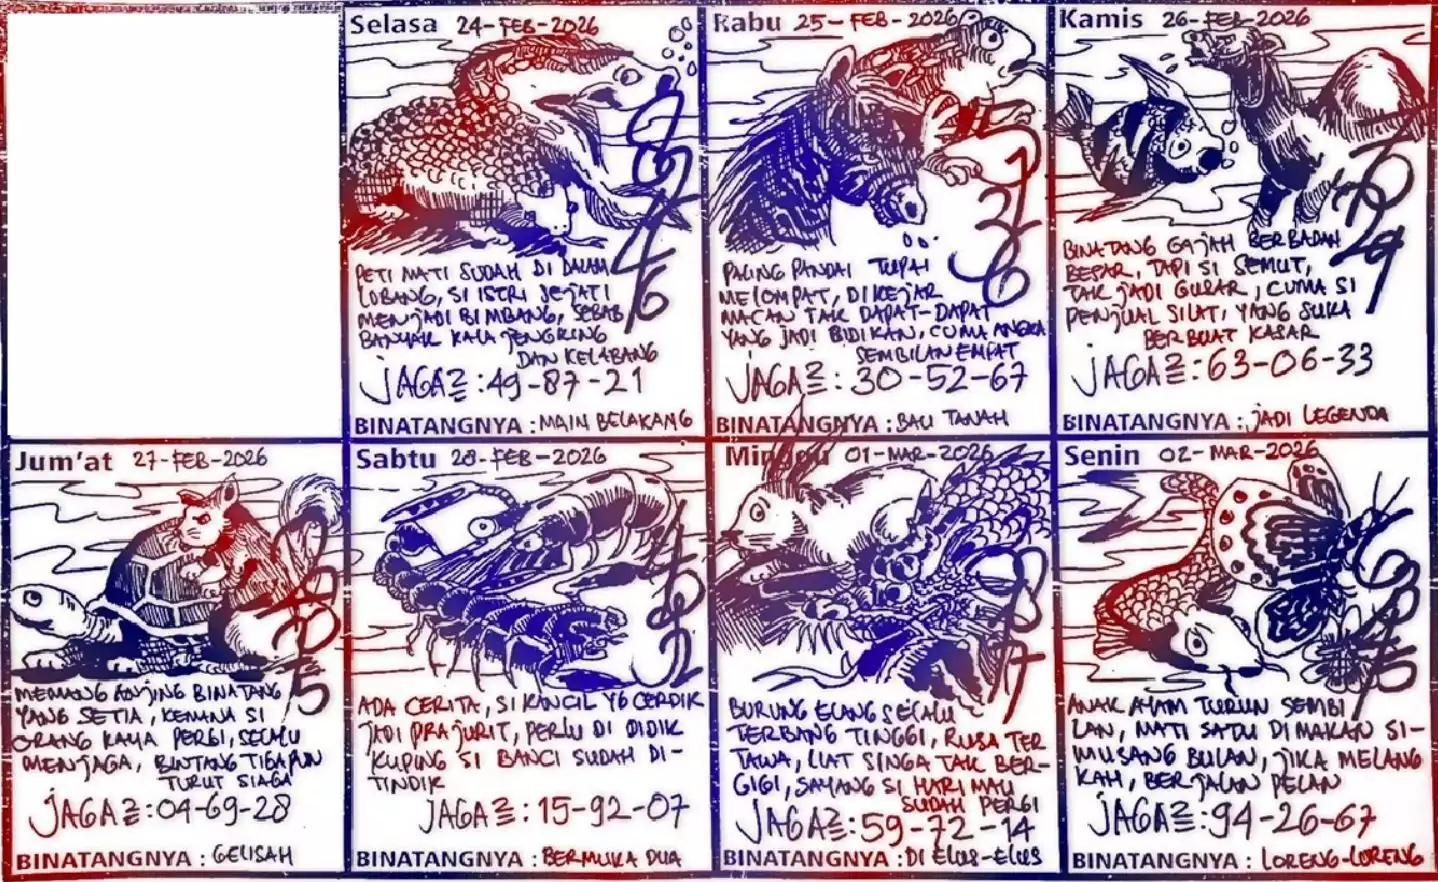 Selasa 24-FEB-2026
PETI MATI SUDAH DI DALAM
LOBANG, SI ISTRI SEJATI
MENJADI BIMBANG, SEBAB
BANYAK KALA JENGKRING
DAN KELABANG
JAGA2=:49-87-21
BINATANGNYA : MAIN BELAKANG
Rabu 25-FEB-2026
PALING PANDAI TUPAI
MELOMPAT, DIKEJAR
MACAN TAK DAPAT-DAPAT
YANG JADI BIDIKAN, CUMA ANGKA
SEMBILAN EMPAT
JAGA2=: 30-52-67
BINATANGNYA : BAU TANAH
Kamis 26-FEB-2026
BINATANG GAJAH BERBADAN
BESAR, TAPI SI SEMUT,
TAK JADI GUSAR, CUMA SI
PENJUAL SILAT, YANG SUKA
BERBUAT KASAR
JAGA2=:63-06-33
BINATANGNYA : JADI LEGENDA
Jum'at 27-FEB-2026
MEMANG ANJING BINATANG
YANG SETIA, KEMANA SI
ORANG KAYA PERGI, SELALU
MENJAGA, BINTANG TIGAPUN
TURUT SIAGA
JAGA2=:04-69-28
BINATANGNYA : GELISAH
Sabtu 28-FEB-2026
ADA CERITA, SI KANCIL YG CERDIK
JADI PRAJURIT, PERLU DI DIDIK
KUPING SI BANCI SUDAH DI-
TINDIK
JAGA2=:15-92-07
BINATANGNYA : BERMUKA DUA
Minggu 01-MAR-2026
BURUNG ELANG SELALU
TERBANG TINGGI, RUSA TER
TAWA, LIAT SINGA TAK BER-
GIGI, SAYANG SI HARIMAU
SUDAH PERGI
JAGA2=:59-72-14
BINATANGNYA : DI ELUS-ELUS
Senin 02-MAR-2026
ANAK AYAM TURUN SEMBI
LAN, MATI SATU DIMAKAN SI-
MUSANG BULAN, JIKA MELANG
KAH, BERJALAN PELAN
JAGA2=:94-26-67
BINATANGNYA : LORENG-LORENG